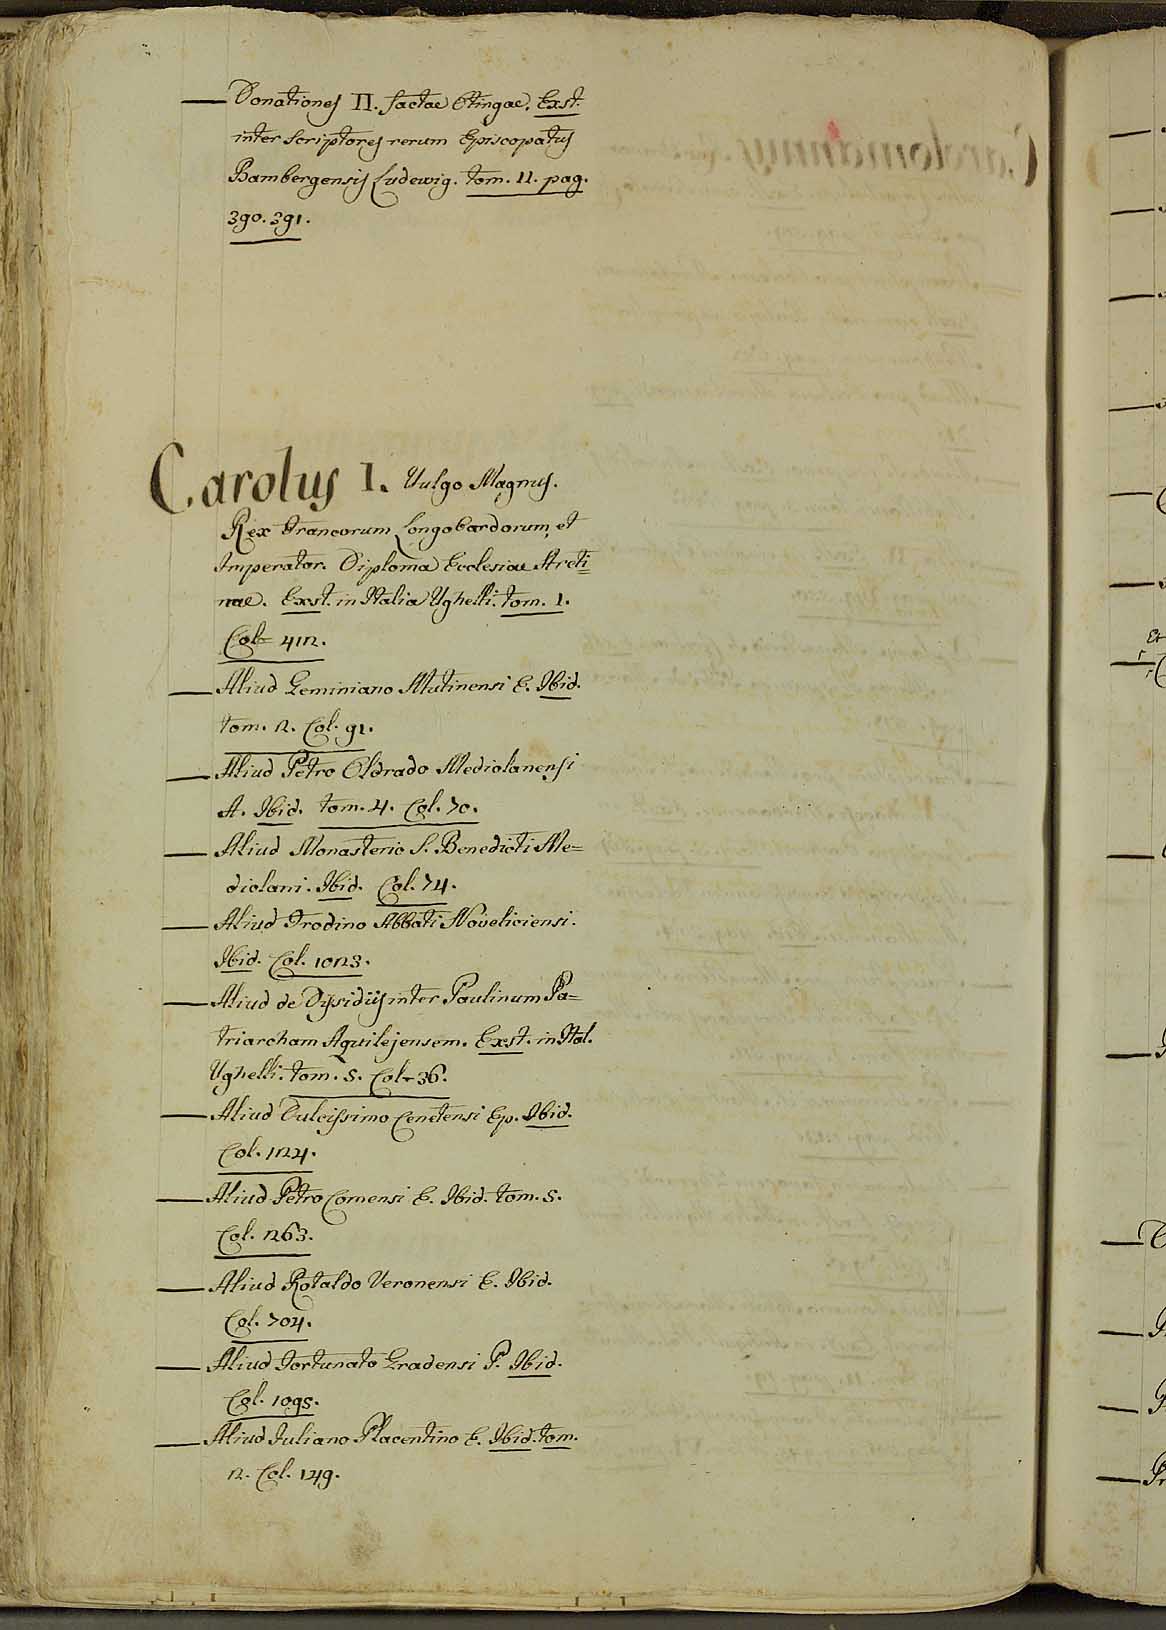 — Donationes II. factae Otingae. Exst.
inter scriptores rerum Episcopatus
Bambergensis Ludewig. tom. II. pag.
390. 391.
Carolus I. Vulgo Magnus.
Rex Francorum Longobardorum, et
Imperator. Diploma Ecclesiae Areti=
nae. Exst. in Italia Ughelli. tom. 1.
Col= 412.
— Aliud Geminiano Mutinensi E. Ibid.
tom. 2. Col. 91.
— Aliud Petro Oldrado Mediolanensi
A. Ibid. tom. 4. Col. 70.
— Aliud Monasterio S. Benedicti Me=
diolani. Ibid. Col. 74.
— Aliud Frodino Abbati Noveliciensi.
Ibid. Col. 1023.
— Aliud de Dissidiis inter Paulinum Pa=
triarcham Aquilejensem. Exst. in Ital.
Ughelli. tom. 5. Col= 36.
— Aliud Dulcissimo Cenetensi Ep. Ibid.
Col. 124.
— Aliud Petro Comensi E. Ibid. tom. 5.
Col. 1263.
— Aliud Rotaldo Veronensi E. Ibid.
Col. 704.
— Aliud Fortunato Gradensi P. Ibid.
Col. 1095.
— Aliud Juliano Placentino E. Ibid. tom.
2. Col. 249.